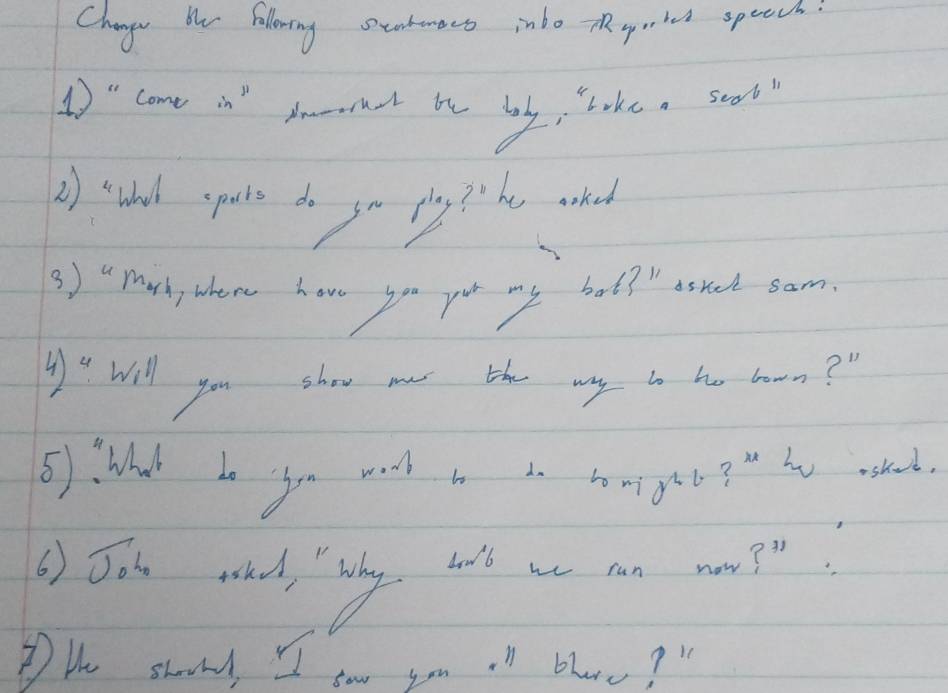 Change the following sentences into Reported speech:
1.) "Come in" remarked the lady, "take a seat"
2) "What sports do you play?" he asked
3.) "Mark, where have you put my bat?" asked sam.
4) "Will you show me the way to the town?"
5) "What do you want to do tonight?" he asked.
6) John asked, "Why don't we run now?"
7) He shouted, "I saw you " there!"